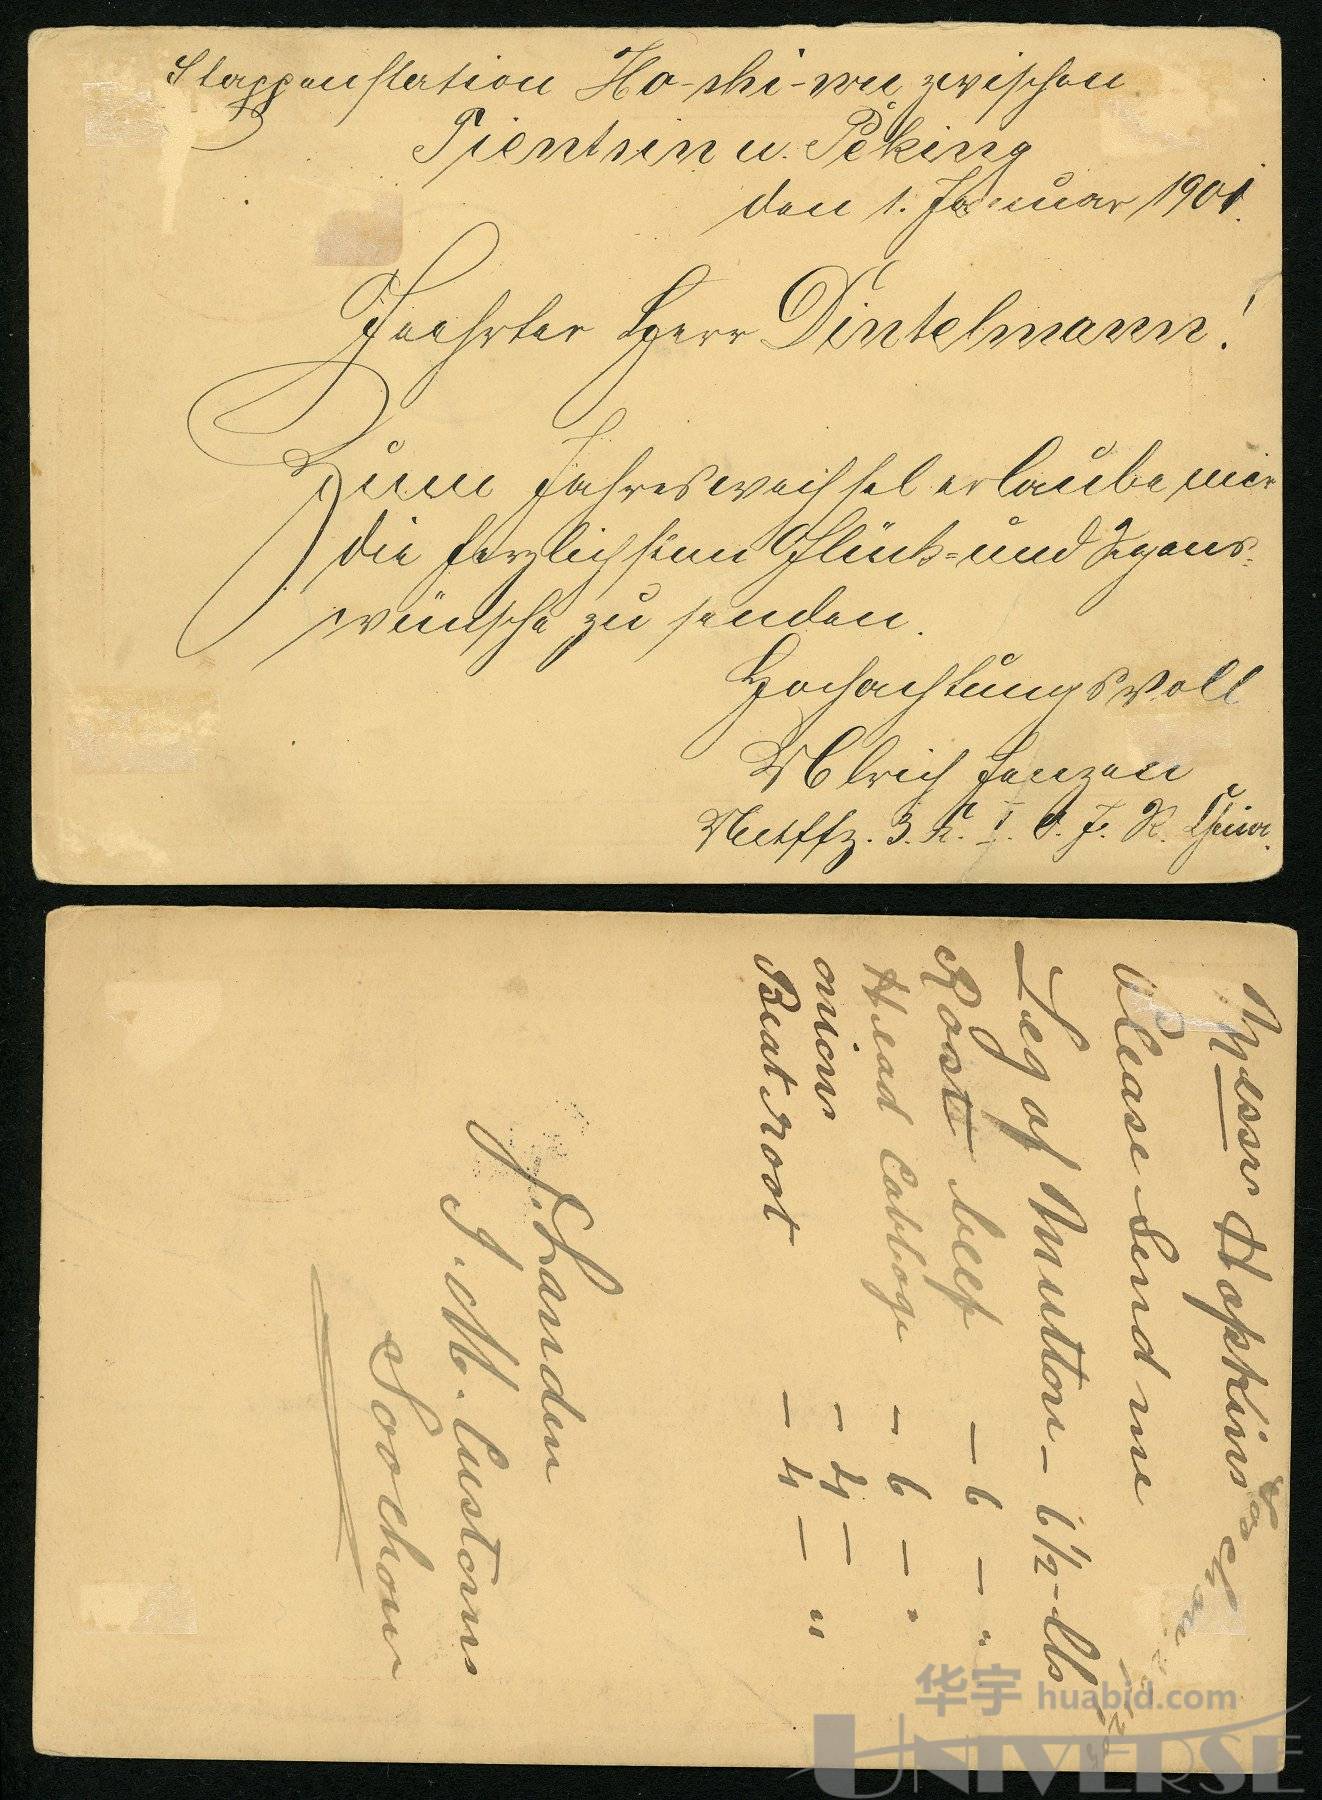 Etappenstation Ho-shi-wu zwischen
Tientsin u. Peking
den 1. Januar 1901.
Geehrter Herr Dintelmann!
Zum Jahreswechsel erlaube mir
die herzlichsten Glück- und Segens-
wünsche zu senden.
Hochachtungsvoll
Ulrich Janzen
Untffz. 3. K. I. O. J. R. China.
Messrs Hopkins & Co
Please Send me
Leg of Mutton – 6 1/2 – lbs
Rost beef – 6 – "
Head Cabbage – 6 – "
onions – 4 –
Beat root – 4 – "
J. Landen
I. M. Customs
Soochow
华宇 huabid.com
UNIVERSE